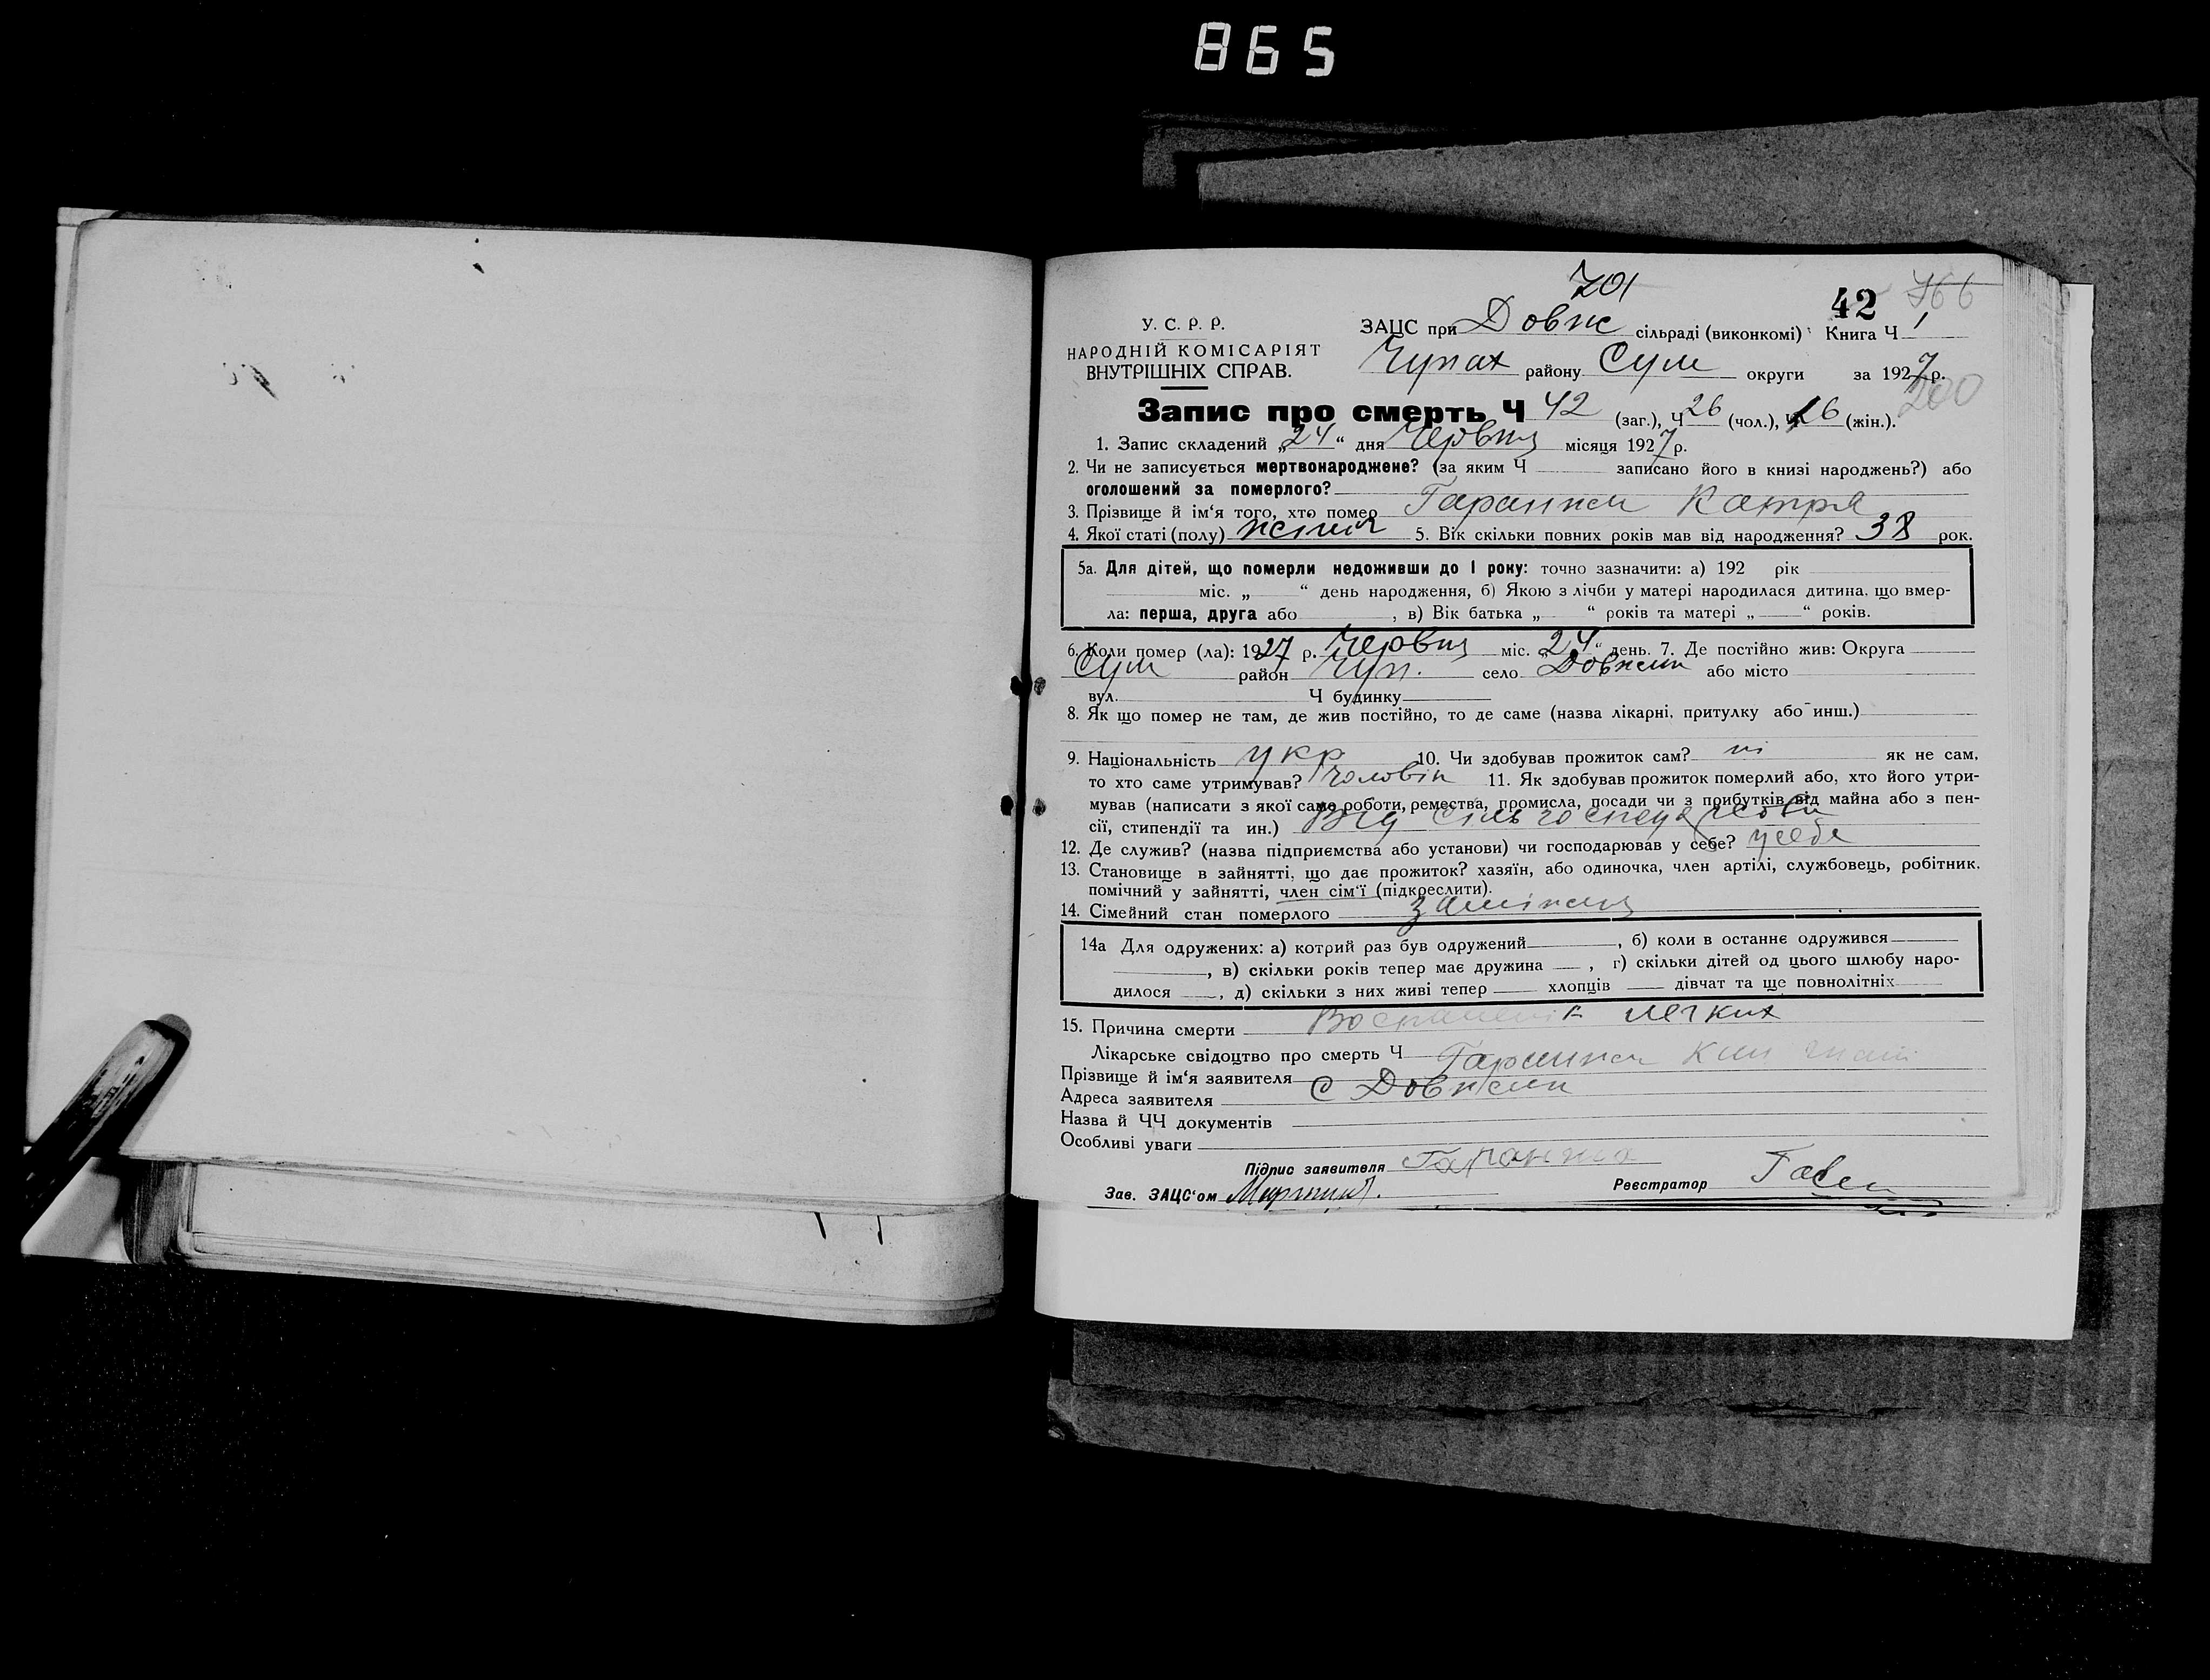 865
701
42 766
У. С. Р. Р. ЗАЦС при Довж сільраді (виконкомі) Книга Ч 1
НАРОДНІЙ КОМІСАРІЯТ
ВНУТРІШНІХ СПРАВ. Чупах району Сум округи за 1927 р.
200
Запис про смерть Ч 42 (заг.), Ч 26 (чол.), Ч 16 (жін.).
1. Запис складений „24“ дня Червня місяця 1927 р.
2. Чи не записується мертвонароджене? (за яким Ч записано його в книзі народжень?) або
оголошений за померлого?
3. Прізвище й ім‘я того, хто помер Гаранжа Катря
4. Якої статі (полу) жіноч 5. Вік скільки повних років мав від народження? 38 рок.
5а. Для дітей, що померли недоживши до 1 року: точно зазначити: а) 192 рік
міс. „ “ день народження, б) Якою з лічби у матері народилася дитина, що вмер-
ла: перша, друга або , в) Вік батька „ “ років та матері „ “ років.
6. Коли помер (ла): 1927 р. Червня міс. „24“ день. 7. Де постійно жив: Округа
Сум район Чуп. село Довжик або місто
вул. Ч будинку
8. Як що помер не там, де жив постійно, то де саме (назва лікарні, притулку або инш.)
9. Національність укр 10. Чи здобував прожиток сам? ні як не сам,
то хто саме утримував? чоловік 11. Як здобував прожиток померлий або, хто його утри-
мував (написати з якої саме роботи, ремества, промисла, посади чи з прибутків від майна або з пен-
сії, стипендії та ин.) Від сільгосподарства
12. Де служив? (назва підприємства або установи) чи господарював у себе? у себе
13. Становище в зайнятті, що дає прожиток? хазяїн, або одиночка, член артілі, службовець, робітник.
помічний у зайнятті, член сім‘ї (підкреслити).
14. Сімейний стан померлого заміжня
14а Для одружених: а) котрий раз був одружений , б) коли в останнє одружився
, в) скільки років тепер має дружина , г) скільки дітей од цього шлюбу наро-
дилося , д) скільки з них живі тепер хлопців дівчат та ще повнолітніх
15. Причина смерти Воспаленія легких
Лікарське свідоцтво про смерть Ч
Прізвище й ім‘я заявителя Гаранжа
Адреса заявителя с Довжик
Назва й ЧЧ документів
Особливі уваги
Підпис заявителя Гаранжа
Зав. ЗАЦС‘ом Реєстратор